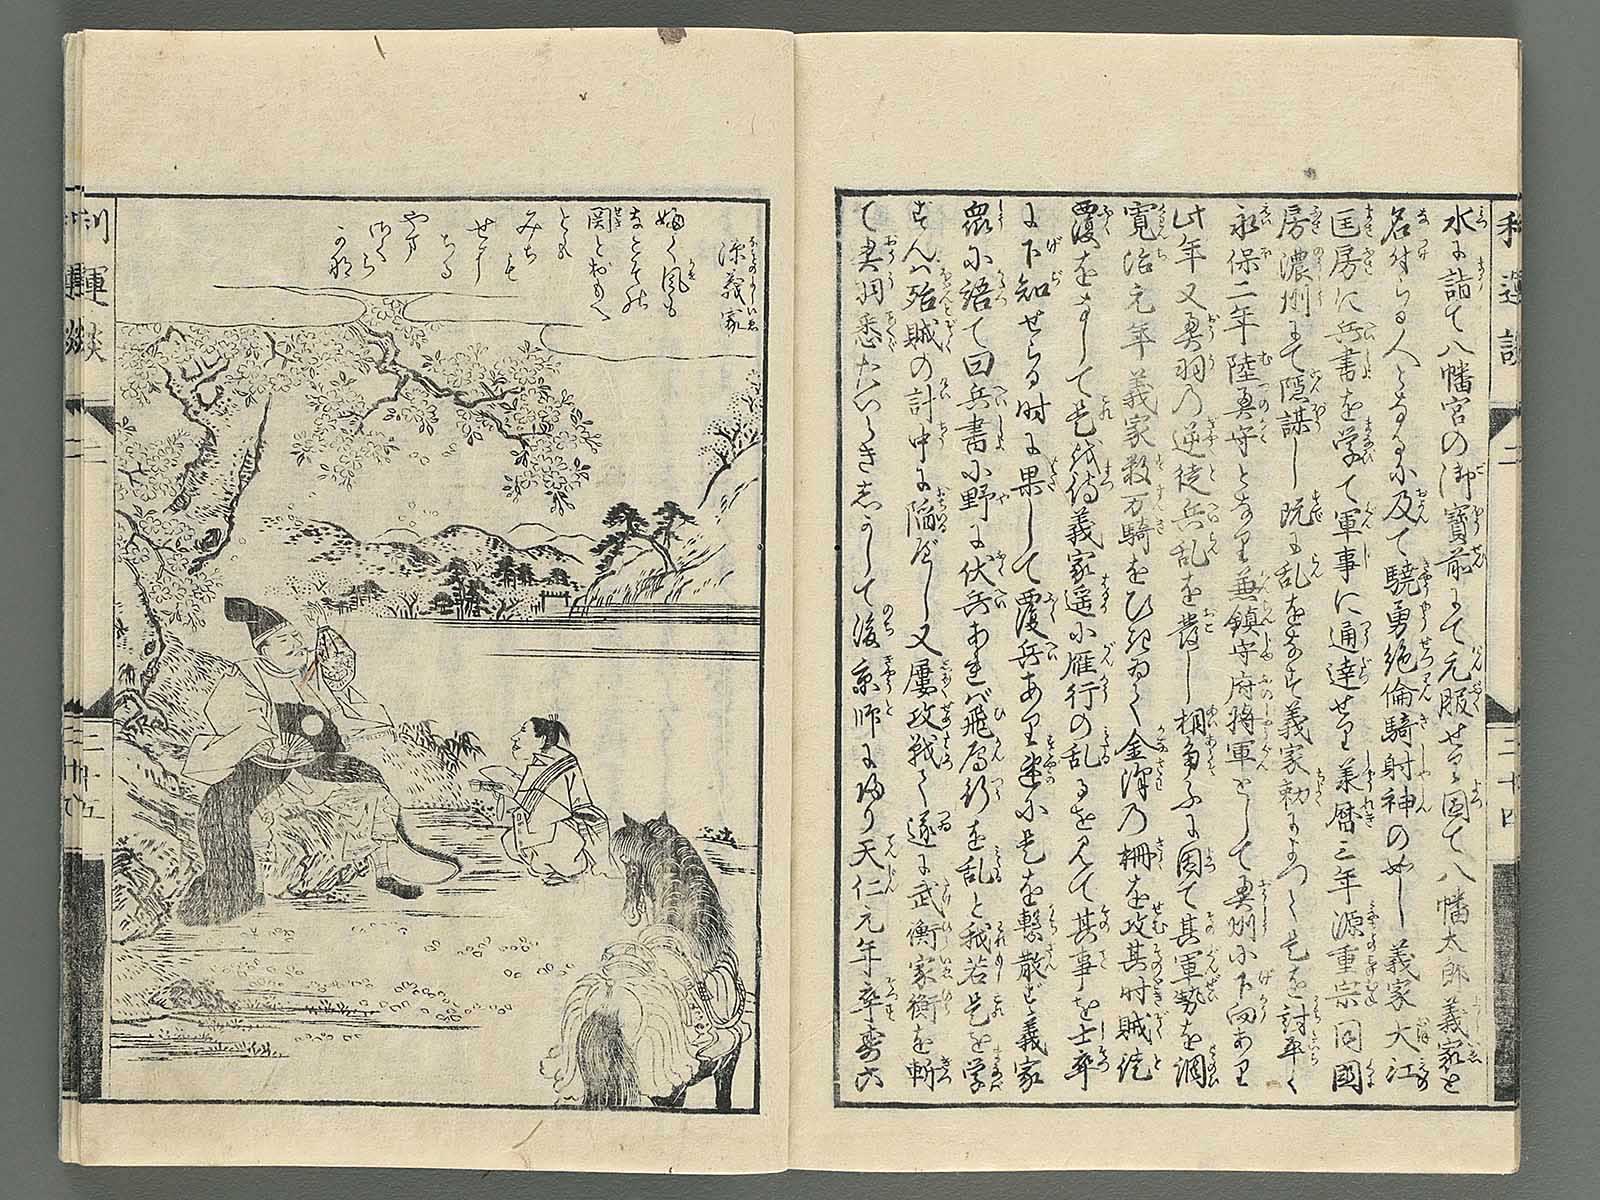 水に詣て八幡宮の御寳前にて元服せるに因て八幡太郎義家と
名付らる人となるに及て驍勇絶倫騎射神の如し義家大江
匡房に兵書を学て軍事に通達せり承暦三年源重宗同國
房濃州にて隠謀し既に乱をなす義家勅によつて是を討平く
永保二年陸奥守となり兼鎮守府将軍として奥州に下向あり
此年又奥羽の逆徒兵乱を發し相争ふに因て其軍勢を調
寛治元年義家数万騎をひきゐて金澤乃柵を攻其時賊徒
覆をまして是を待義家遥に雁行の乱るを見て其事を士卒
に下知せらる時に果して覆兵あり速に是を撃散ず義家
衆に語て曰兵書に野に伏兵あれバ飛雁行を乱と我若是を学
ずんバ殆賊の計中に陥べし又屢攻戦て遂に武衡家衡を斬
て奥羽悉たいらきしかして後京師に帰り天仁元年卒壽六
利運談
二
二十四
源義家
吹く風も
なこその
関とおもへ
とも
みちも
せに
ちる
やま
さくら
かな
利運談
二
二十五